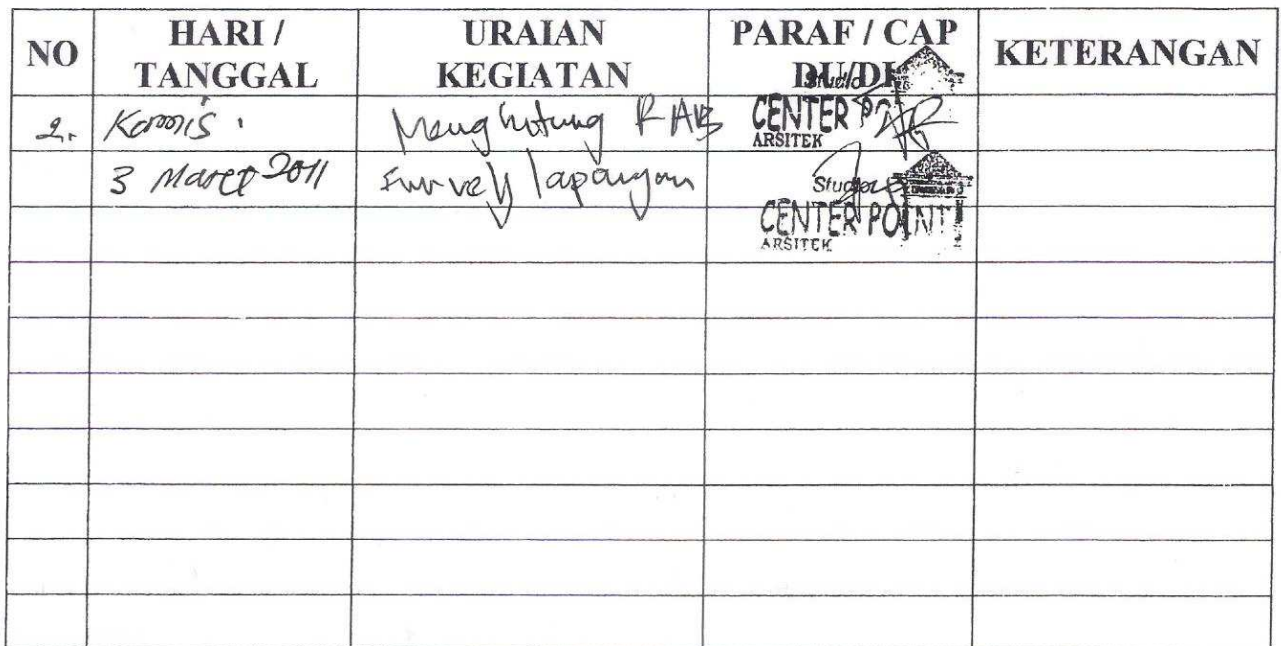 NO HARI / TANGGAL URAIAN KEGIATAN PARAF / CAP DU/DI KETERANGAN
2. Kamis Menghitung RAB Studio CENTER POINT ARSITEK
3 Maret 2011 Survey lapangan Studio CENTER POINT ARSITEK